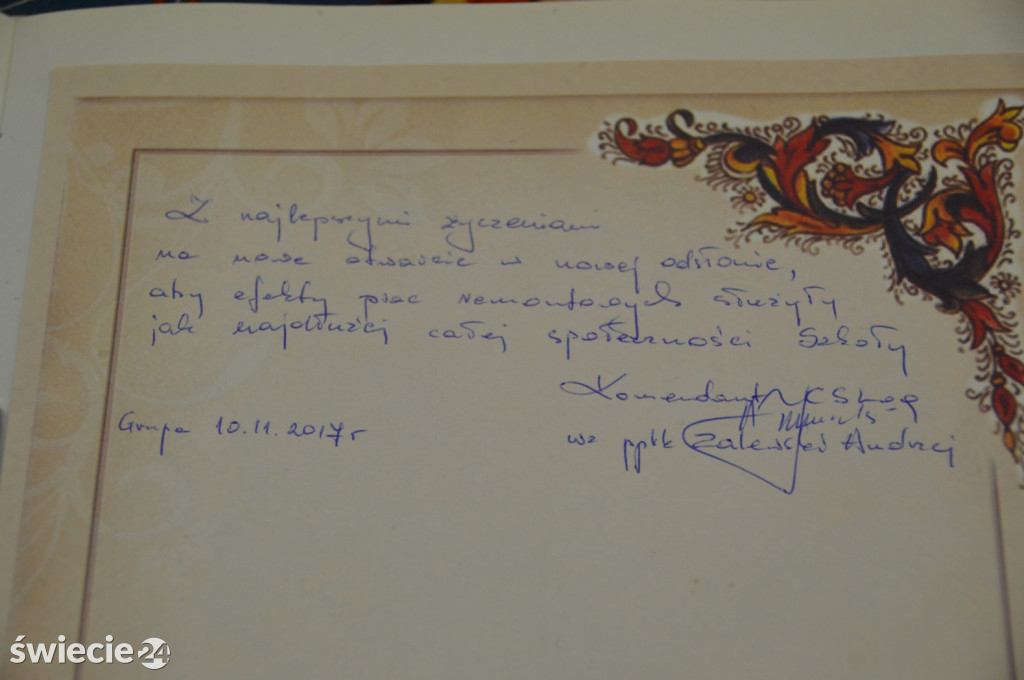 Z najlepszymi życzeniami
na nowe otwarcie w nowej odsłonie,
aby efekty prac remontowych służyły
jak najdłużej całej społeczności Szkoły
Komendant
Grupa 10.11.2017r
wz ppłk Zalewski Andrzej
świecie24